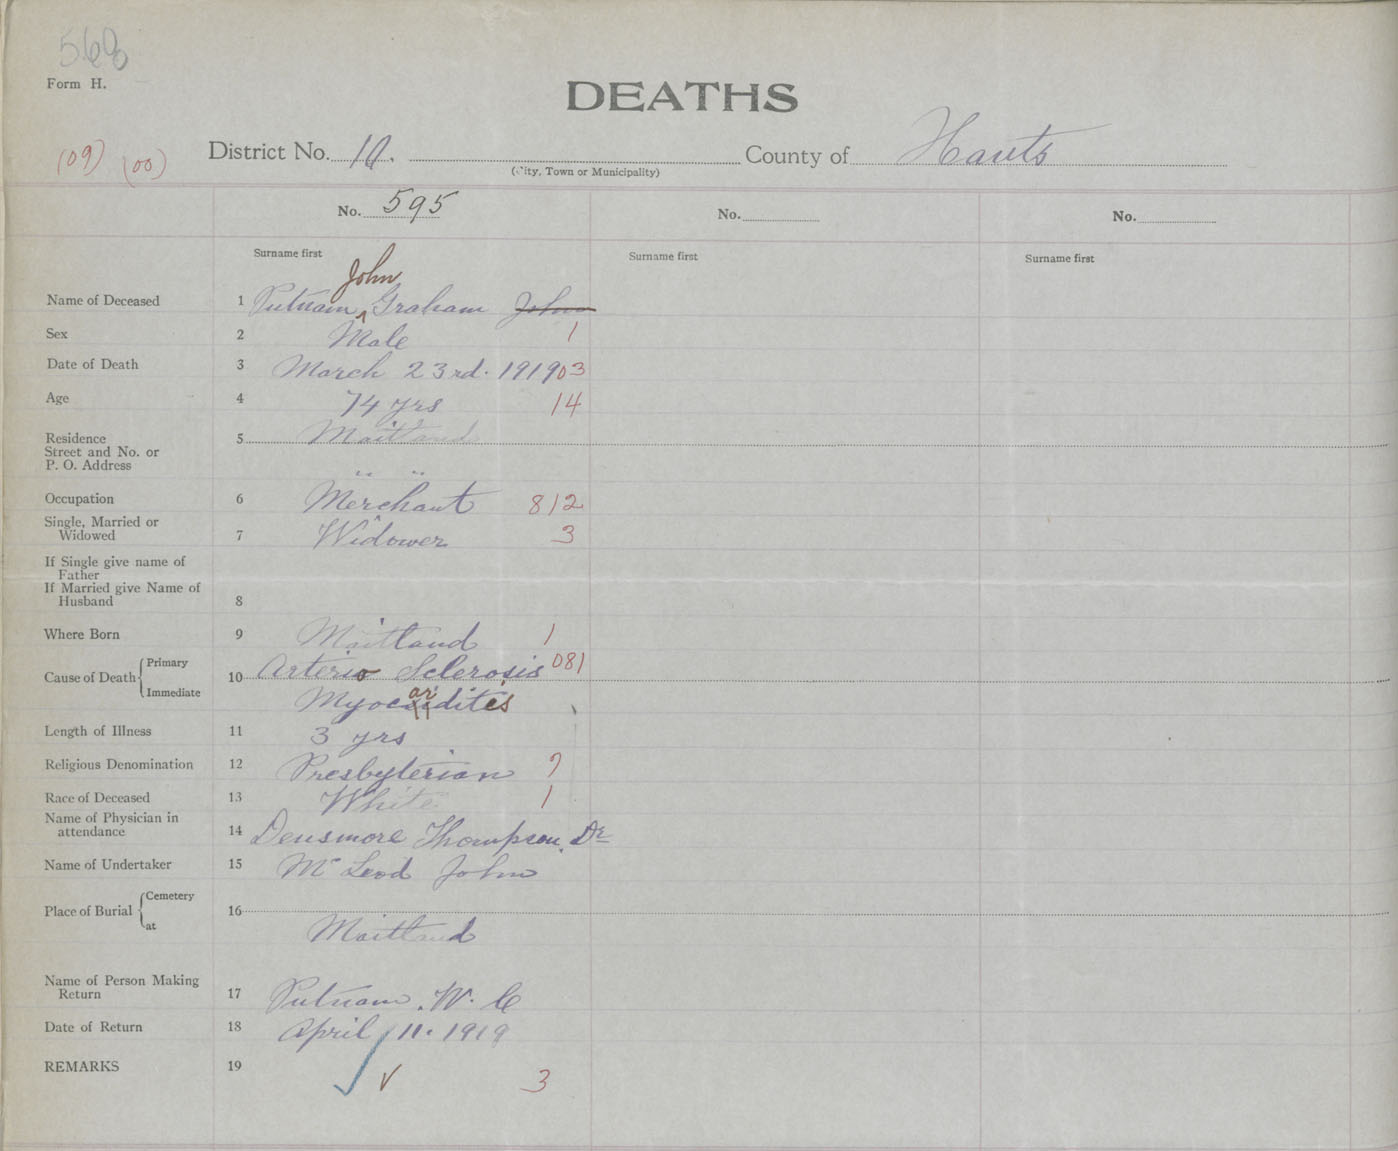 568
Form H.
DEATHS
(09) (00)
District No. 10. County of Hants
(City, Town or Municipality)
No. 595 No. No.
Surname first Surname first Surname first
John
Name of Deceased 1 Putnam ^ Graham John
Sex 2 Male 1
Date of Death 3 March 23rd. 1919 03
Age 4 74 yrs 14
Residence 5 Maitland
Street and No. or
P. O. Address " "
Occupation 6 Merchant 812
Single, Married or
Widowed 7 Widower 3
If Single give name of
Father
If Married give Name of
Husband 8
Where Born 9 Maitland 1
Cause of Death Primary 10 Arterio Sclerosis 081
Immediate Myocarditis
Length of Illness 11 3 yrs
Religious Denomination 12 Presbyterian 7
Race of Deceased 13 White 1
Name of Physician in
attendance 14 Densmore Thompson, Dr
Name of Undertaker 15 McLeod John
Place of Burial Cemetery 16
at Maitland
Name of Person Making
Return 17 Putnam. W. C
Date of Return 18 April 11. 1919
REMARKS 19 3